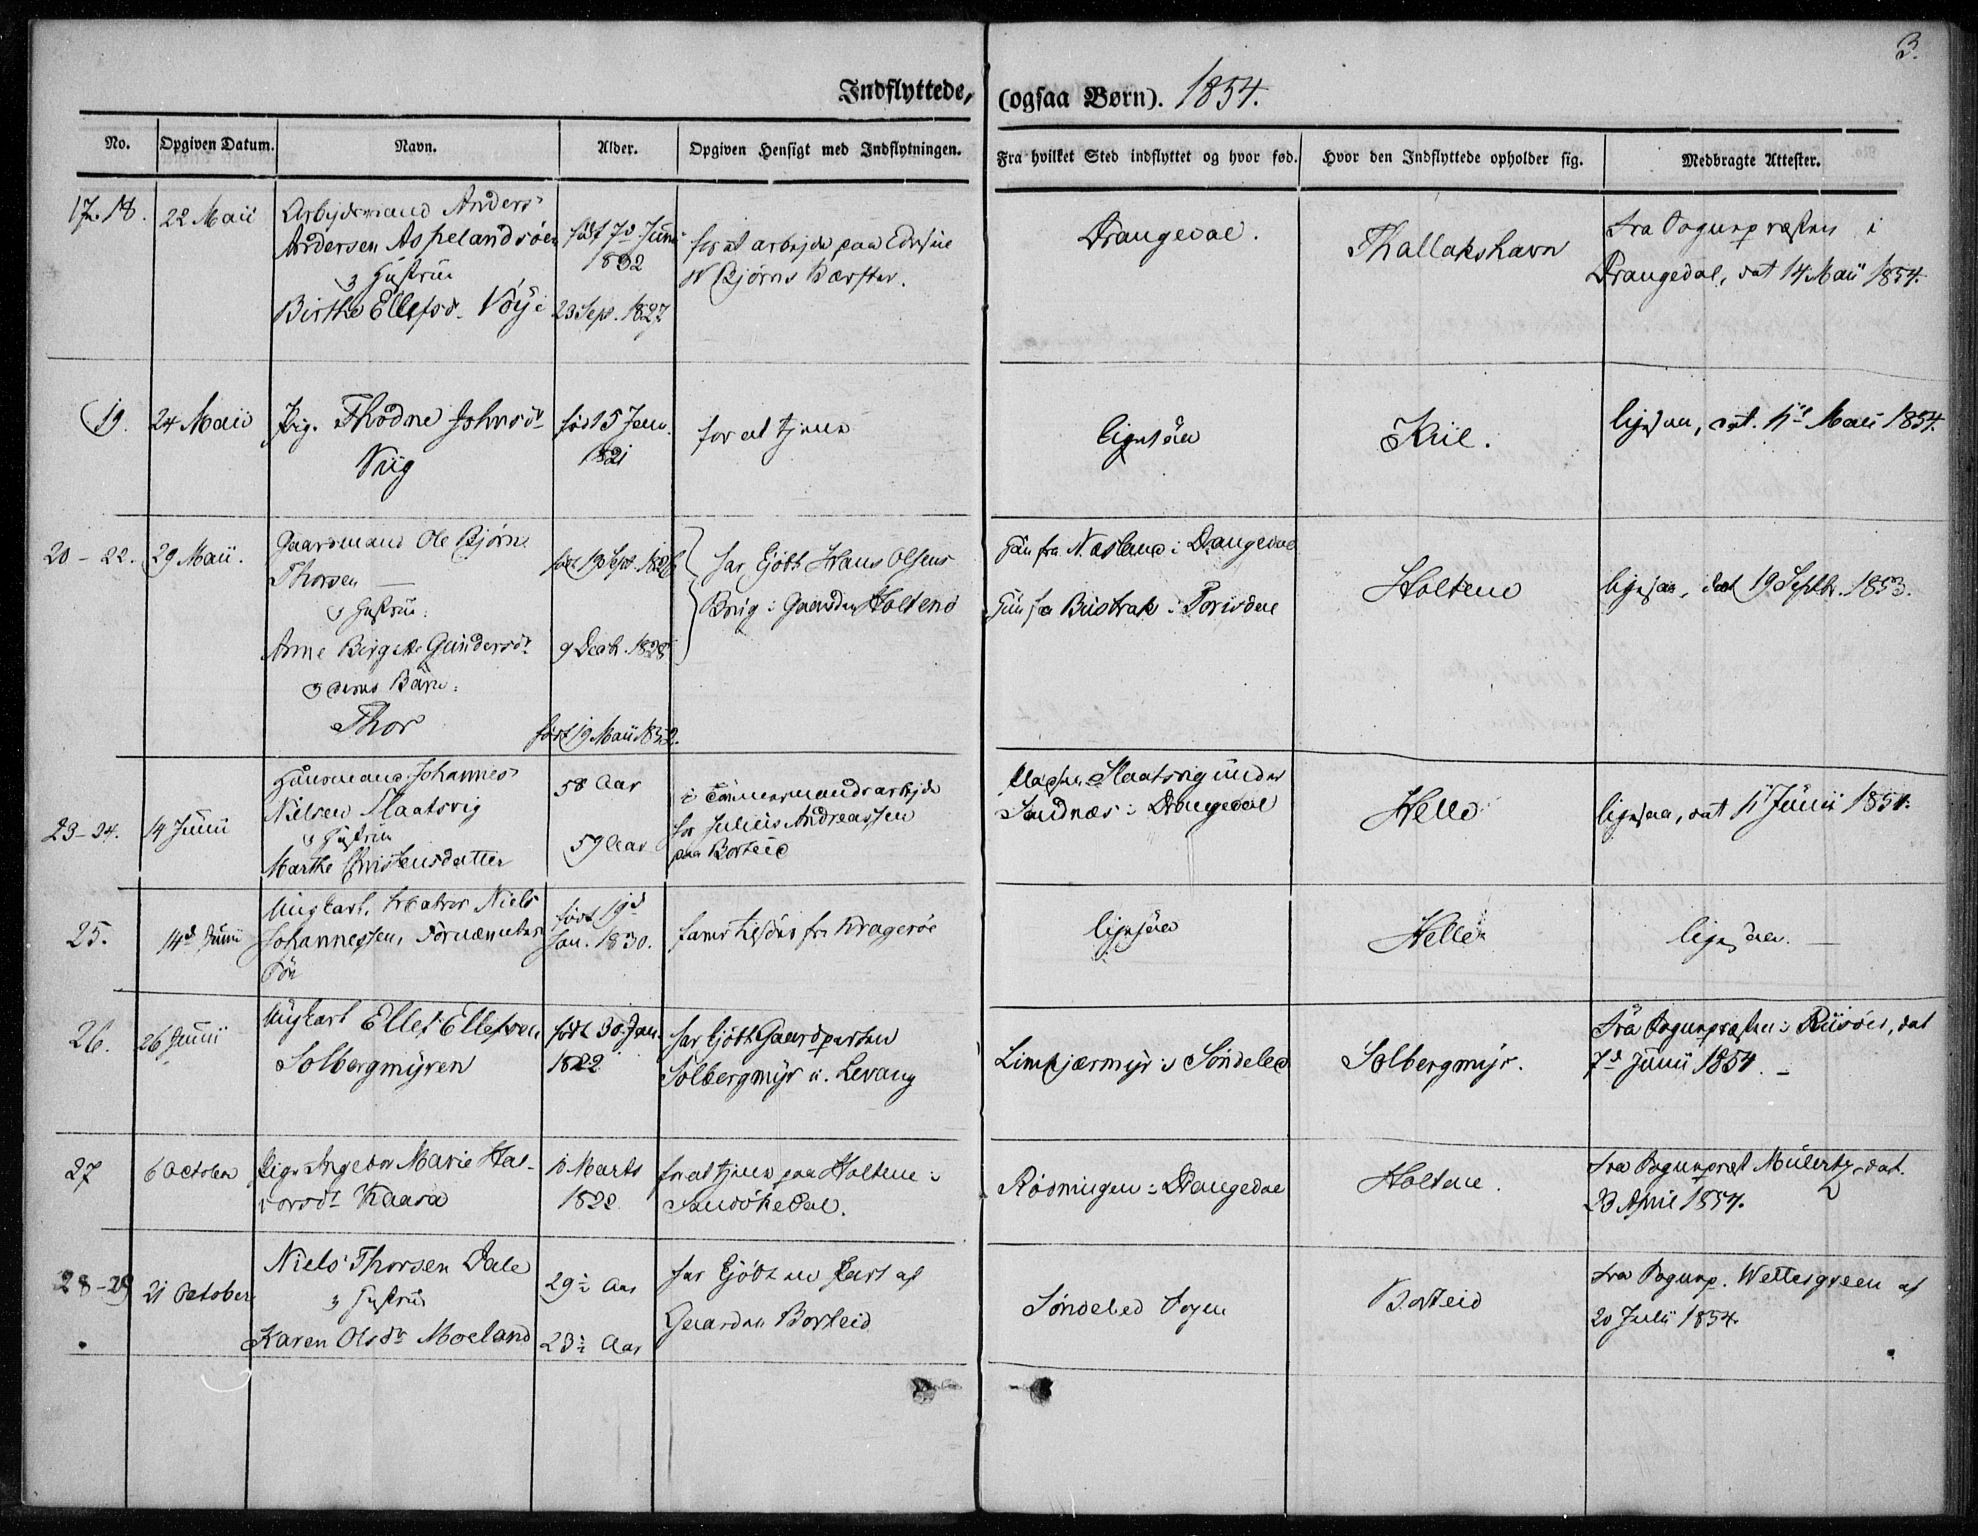 3.
Indflyttede, (ogsaa Børn). 1854.
No. Opgiven Datum. Navn. Alder. Opgiven Hensigt med Indflytningen. Fra hvilket Sted indflyttet og hvor fød. Hvor den Indflyttede opholder sig. Medbragte Attester.
17. 18. 22 Maii
Arbejdsmand Anders
Andersen Aspelandsöen
& Hustrue
Birthe Ellefsd.
født 7d Juni
1832
23 Sept. 1827
for at arbejde paa
Bjørns Værfter.
Drangedal.
Thallakshavn
Fra Sognepræsten i
Drangedal, dat 14 Maii 1854.
19. 24 Maii
Pig. Thodne Johnsdr
Viig
født 5 Janu.
1821
for at tjene
ligesaa
Kiil.
ligesaa, dat. Maii 1854.
20 - 22. 29 Maii.
Gaardmand Ole Bjørn
Thorsen
& Hustrue:
Anne Birgitte Gundersdr
& deres Barn:
Thor
født 19 Sept. 1826
9 Decbr. 1828
født 19 Maii 1852.
har kjøbt Hans Olsens
Brug i Gaarden Holtene
Han fra Næsland i Drangedal
Hun fra Bustrak i Torisdal
Holtene
ligesaa, dat 19 Septbr. 1853.
23 - 24. 14 Junii
Huusmand Johannes
Nielsen Slaatsvig
& Hustrue
Marthe Christensdatter
58 Aar
59 Aar
i Tømmermandsarbejde
for Julius Andreassen
paa Borteid
Pladsen Slaatsvig under
Sandnæs i Drangedal
Helle
ligesaa, dat 11 Junii 1854.
25. 14d Junii
Ungkarl, Matros Niels
Johannessen, Fornævntes
Søn
født 19d
Jan. 1830.
farer tilsøes fra Kragerøe
ligesaa
Helle
ligesaa.
26. 26 Junii
Ungkarl Ellef Ellefsen
Solbergmyren
født 30 Jan.
1822
har kjøbt Gaardparten
Solbergmyr u. Levang
Limkjærmyr i Søndeled
Solbergmyr.
Fra Sognepræsten i Riisöer, dat
7d Junii 1854.
27 6 October
Pige Ingebor Marie Hal-
vorsdr Kaasa
10 Marts
1822
for at tjene paa Holtene i
Sandökedal.
Rödningen i Drangedal
Holtene.
Fra Sognepræst Mülertz, dat.
23 April 1854.
28 - 29 21 October
Niels Thorsen Dale
& Hustrue
Karen Olsdr Moeland
29½ Aar
23½ Aar
har kjøbt en Part af
Gaarden Borteid
Søndeled Sogn
Borteid
Fra Sognep. Wettergreen af
20 Julii 1854.